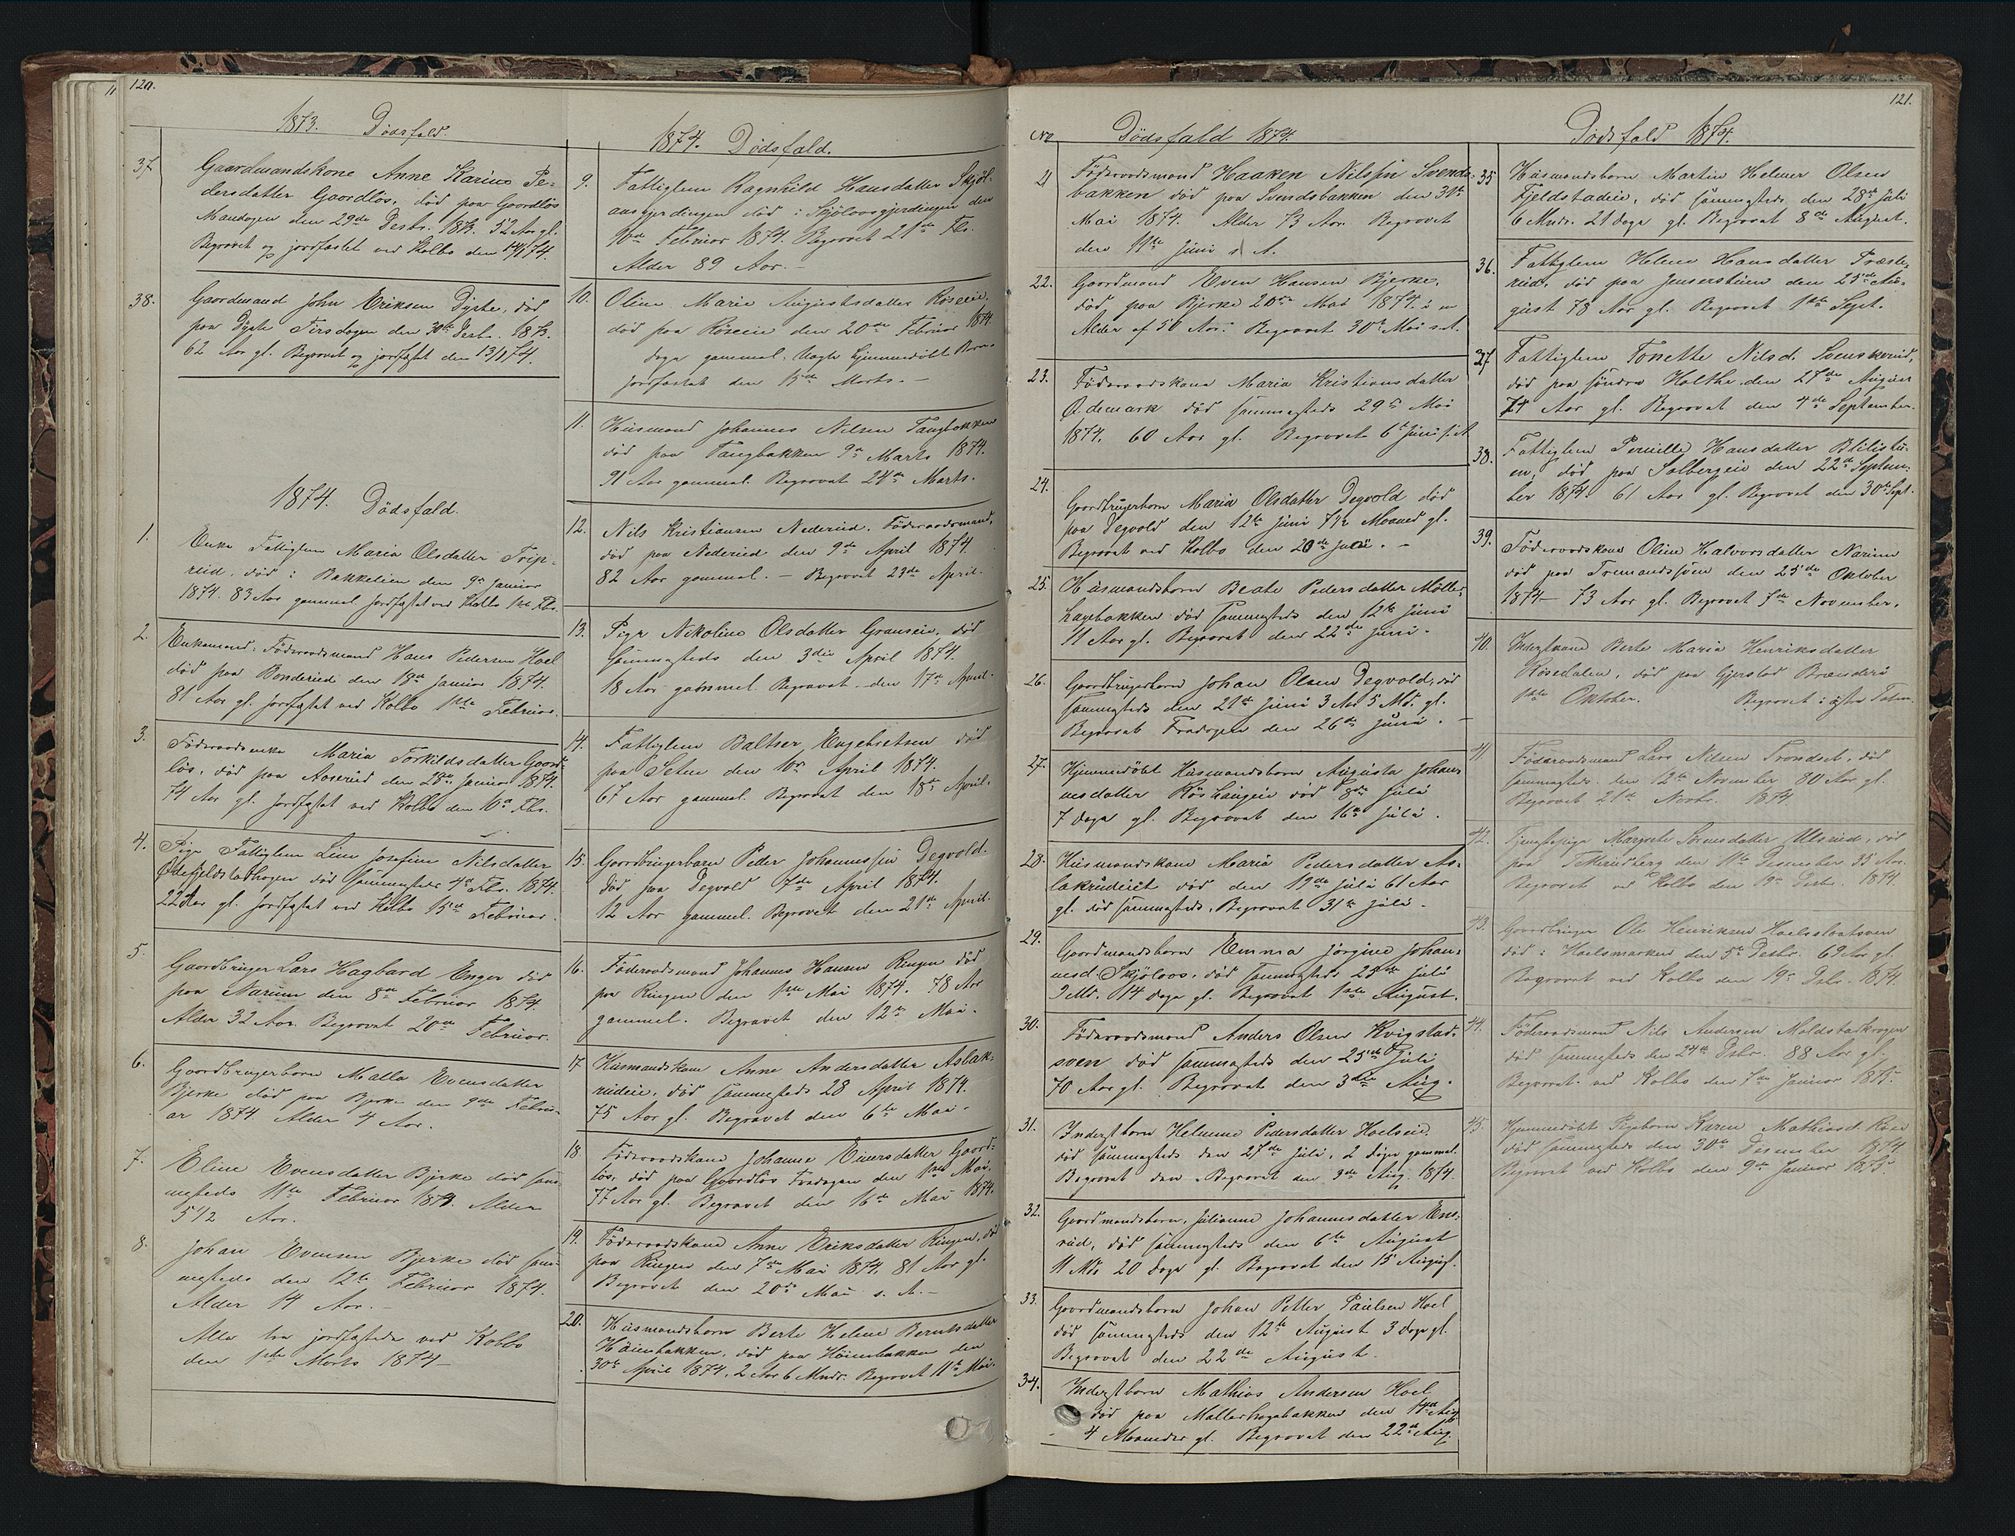 120.
1873. Dödsfald.
37 Gaardmandskone Anne Karine Pe-
dersdatter Gaardlös, död paa Gaardlös
Mandagen den 29de Desbr. 1873. 52 Aar gl.
Begravet og jordfæstet ved Kolbo den 14/1 74.
38. Gaardmand John Eriksen Dyste, död
paa Dyste Tirsdagen den 30te Desbr. 1873.
62 Aar gl. Begravet og jordfæstet den 13/1 74.
1874. Dödsfald.
1. Enke Fattiglem Maria Olsdatter Trip-
rud, död i Bakkelien den 9de Januar
1874. 83 Aar gammel jordfæstet ved Kolbo 1ste Feb.
2. Enkemand: Föderaadsmand Hans Pedersen Hoel
död paa Bonderud den 19de Januar 1874.
81 Aar gl. jordfæstet ved Kolbo 1ste Februar.
3. Föderaadsenke Maria Torkildsdatter Gaard-
lös, död paa Aaserud den 28de Januar 1874.
74 Aar gl. jordfæstet ved Kolbo den 10de Feb.
4. Pige Fattiglem Line Josefine Nilsdatter
död sammesteds 4de Feb. 1874.
22 Aar gl. jordfæstet ved Kolbo 15de Februar.
5. Gaardbruger Lars Hagbard Enger död
paa Narum den 8de Februar 1874.
Alder 32 Aar. Begravet 20de Februar.
6. Gaardbrugerbarn Malla Evensdatter
Bjerke död paa Bjerke den 9de Febru-
ar 1874 Alder 4 Aar.
7. Eline Evensdatter Bjerke död sam-
mesteds 11te Februar 1874. Alder
5 1/2 Aar.
8. Johan Evensen Bjerke död sam-
mesteds den 12te Februar 1874.
Alder 14 Aar.
Alle tre jordfæstede ved Kolbo
den 1ste Marts 1874
1874. Dödsfald.
9. Fattiglem Ragnhild Hansdatter Skjöl-
aasgjerdingen död i Skjölaasgjerdingen den
10de Februar 1874. Begravet 21de Feb.
Alder 89 Aar.
10. Oline Marie Augustsdatter Röseie,
död paa Röseie den 20de Februar 1874
Dage gammel. Uægte hjemmedöbt Barn
jordfæstet den 15de Marts.
11. Husmand Johannes Nilsen Tangbakken
död paa Tangbakken 9de Marts 1874.
91 Aar gammel Begravet 24de Marts.
12. Nils Kristiansen Nederud, Föderaadsmand,
död paa Nederud den 9de April 1874.
82 Aar gammel. Begravet 23de April.
13. Pige Nikoline Olsdatter Granseie, död
Sammesteds den 3die April 1874.
18 Aar gammel Begravet den 17de April.
14. Fattiglem Baltser Engebretsen död
paa Seten den 10de April 1874.
67 Aar gammel. Begravet den 18de April.
15. Gaardbrugerbarn Peter Johannessen Degvold.
död paa Degvold 7de April 1874.
12 Aar gammel Begravet den 21de April.
16. Föderaadsmand Johannes Hansen Ringen död
paa Ringen den 1ste Mai 1874. 78 Aar
gammel. Begravet den 12te Mai.
17 Husmandskone Anne Andersdatter Aslak-
rudeie, död sammesteds 28 April 1874.
75 Aar gl. Begravet den 6te Mai.
18. Föderaadskone Johanne Einersdatter Gaard-
lös, död paa Gaardlös Fredagen den 1ste Mai.
77 Aar gl. Begravet den 16de Mai 1874.
19. Föderaadskone Anne Eriksdatter Ringen, död
paa Ringen den 7de Mai 1874. 81 Aar gl.
Begravet den 20de Mai s. A.
20. Husmandsbarn Berte Helene Berntsdatter
Hönebakken, död paa Hönebakken den
30te April 1874. 2 Aar 6 Mndr. Begravet 11te Mai.
121.
No Dödsfald 1874.
21 Föderaadsmand Haaken Nilssen Svends-
bakken död paa Svendsbakken den 30te
Mai 1874. Alder 73 Aar. Begravet
den 11te Juni s A.
22. Gaardmand Even Hansen Bjerke,
död paa Bjerke 20de Mai 1874 i en
Alder af 50 Aar. Begravet 30te Mai s.A.
23. Föderaadskone Maria Kristiansdatter
Odemark död sammesteds 29de Mai
1874. 60 Aar gl. Begravet 6te Juni s.A
24. Gaardbrugerbarn Maria Olsdatter Degvold död
paa Degvold den 12te Juni 7 1/2 Maaned gl.
Begravet ved Kolbo den 20de Juni.
25. Husmandsbarn Beate Pedersdatter Möller-
hagebakken död sammesteds den 12te Juni
11 Aar gl. Begravet den 22de Juni.
26. Gaardbrugerbarn Johan Olsen Degvold, död
sammesteds den 21de Juni 3 Aar 5 Md. gl.
Begravet Fredagen den 26de Juni.
27. Hjemmedöbt Husmandsbarn Augusta Johan-
nesdatter död 8de Juli
7 Dage gl. Begravet den 16de Juli.
28. Husmandskone Maria Pedersdatter As-
lakrudeiet död den 19de Juli 61 Aar
gl. död sammesteds, Begravet 31te Juli.
29. Gaardmandsbarn Emma Jörgine Johan-
nesd. Skjölaas, död sammesteds 25de Juli
9 Md. 14 Dage gl. Begravet 1ste August.
30. Föderaadsmand Anders Olsen Kvigstad-
sven död sammesteds den 25de Juli
70 Aar gl. Begravet den 3die Aug.
31. Inderstbarn Helenne Pedersdatter Hoelseie
död sammesteds den 27de Juli, 2 Dage gammel
Begravet den Begravet den 3die Aug. 1874.
32. Gaardmandsbarn, Julianne Johannesdatter Ene-
rud, död sammesteds den 6te August
11 Md. 20 Dage gl. Begravet den 15 August.
33. Gaardmandsbarn Johan Petter Paulsen Hoel
död sammesteds den 12te August 3 Dage gl.
Begravet den 22de August.
34. Inderstbarn Mathias Andersen Hoel
död paa Mallerhagebakken den 14de Aug
4 Maaneder gl. Begravet den 22de Aug.
Dödsfald 1874.
35 Husmandsbarn Martin Helmer Olsen
Fjeldstadeie, död sammesteds den 28de Juli
6 Mndr. 21 Dage gl. Begravet 8de August.
36. Fattiglem Helene Hansdatter Præste-
rud, död paa Jensersteien den 25de Au-
gust 78 Aar gl. Begravet 1ste Sept.
37 Fattiglem Tonette Nilsd. Svenskerud,
död paa söndre Holthe den 27de August
74 Aar gl. Begravet den 4de September.
38. Fattiglem Pernille Hansdatter Blilistu-
en, död paa Solbergeie den 22de Septem-
ber 1874 61 Aar gl. Begravet den 30te Sept.
39. Föderaadskone Oline Halvorsdatter Narum
död paa Tremandssven den 25de Oktober
1874 73 Aar gl. Begravet 7de November.
40. Inderstkone Berte Maria Henriksdatter
Rosedalen, död paa Gjerstad Brænderi
1ste Oktober. Begravet i östre Toten
41 Föderaadsmand Lars Nilsen Trondset, död
sammesteds den 12te November 80 Aar gl.
Begravet 21de Novbr. 1874
42. Tjenstepige Margrete Sörensdatter Ulsrud, död
paa den 11te Desember 35 Aar.
Begravet ved Kolbo den 19de Desbr. 1874.
43. Gaardbruger Ole Henriksen Hoelsslaatsven
död i Hoelsmarken den 5te Desbr. 69 Aar gl.
Begravet ved Kolbo den 19de Desbr. 1874.
44. Föderaadsmand Nils Andersen Moldstadkragen
död sammesteds den 24de Desbr. 88 Aar gl.
Begravet ved Kolbo den 7de Januar 1875.
45. Hjemmedöbt Pigebarn Karen Mathiasd. Röise
död sammesteds den 30te Desember 1874
Begravet ved Kolbo den 9de Januar 1875.